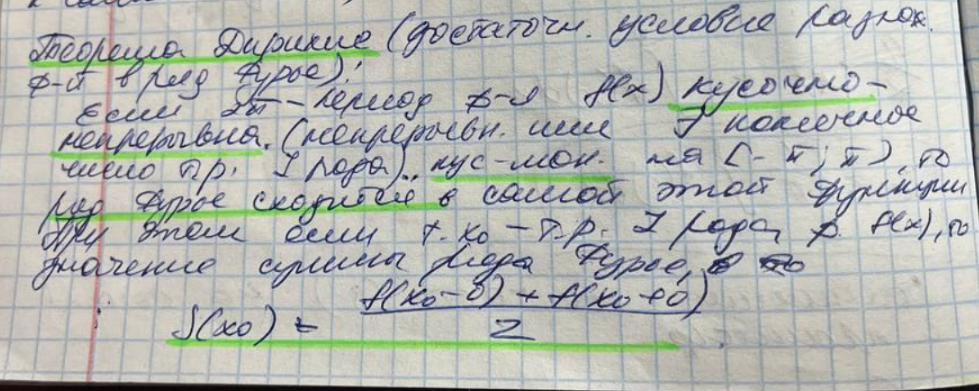 Теорема Дирихле (достаточн. условие разлож.
ф-й в ряд Фурье):
Если 2π-период ф-я f(x) кусочно-
непрерывна (непрерывн. или ∃ конечное
число т.р. I рода), кус-мон. на [-π; π], то
ряд Фурье сходится в самой этой функции
При этом если т. x₀ - т.р. I рода ф. f(x), то
значение суммы ряда Фурье
f(x₀-0) + f(x₀+0)
S(x₀) = 2